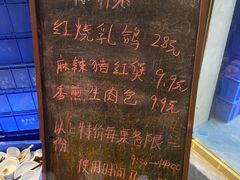 红烧乳鸽 28元
麻辣猪红煲 9.9元
香煎生肉包 9.9元
以上特价每桌各限一
份
使用时间
9:30-14:00